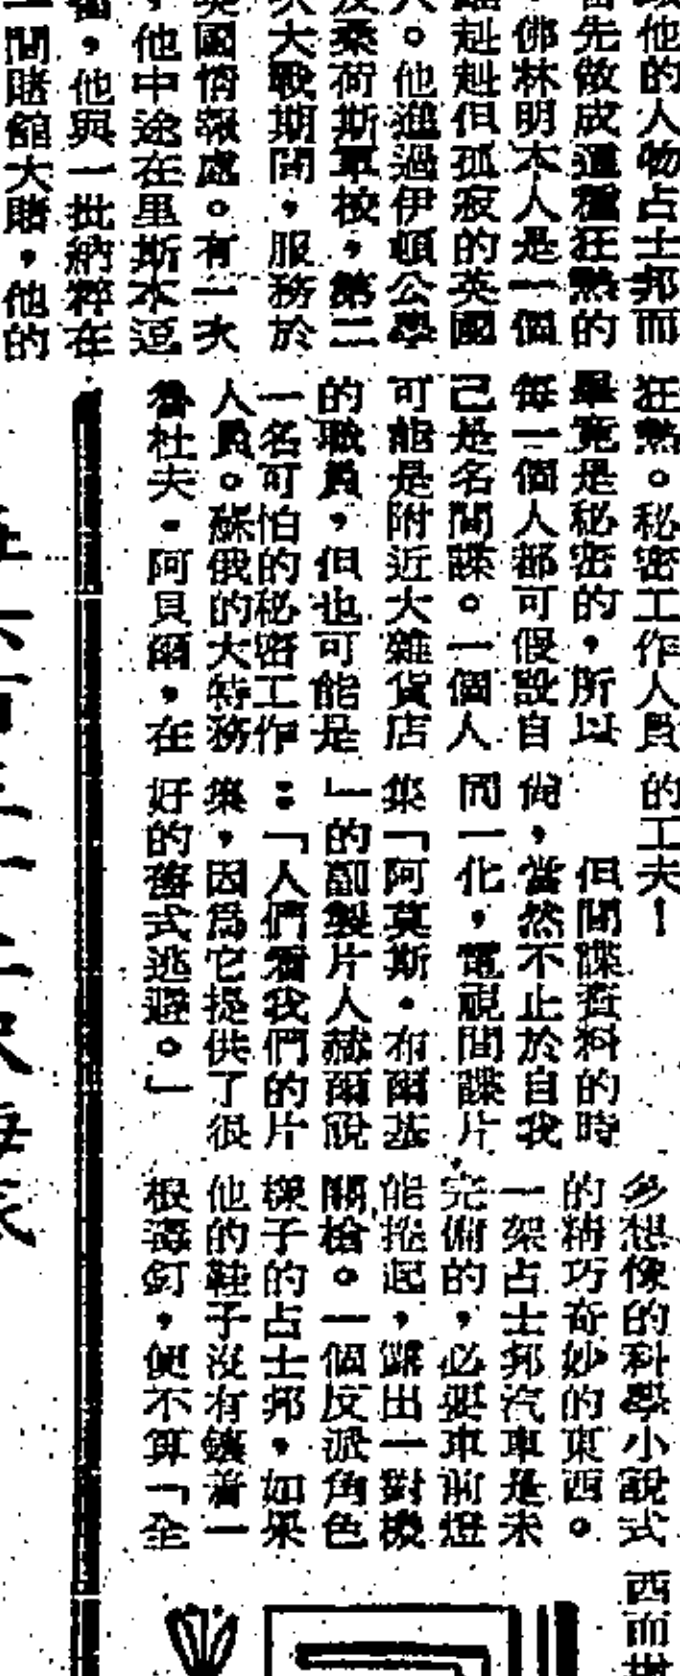 他的人物占士邦而
先做成這種狂熱的
佛林明本人是一個
赳赳但孤寂的英國
。他進過伊頓公學
桑荷斯軍校,第二
大戰期間,服務於
國情報處。有一次
,他中途在里斯本逗
,他與一批納粹在
一間賭館大賭,他的
狂熱。秘密工作人員
畢竟是秘密的,所以
每一個人都可假設自
己是名間諜。一個人
可能是附近大雜貨店
的職員,但也可能是
一名可怕的秘密工作
人員。蘇俄的大特務
魯杜夫·阿貝爾,在
的工夫!
但間諜資料的時
尙,當然不止於自我
同一化,電視間諜片
集「阿莫斯·布爾基
」的副製片人赫爾說
:「人們看我們的片
集,因爲它提供了很
好的舊式逃避。」
多想像的科學小說式
的精巧奇妙的東西。
一架占士邦汽車是未
完備的,必要車前燈
能捲起,露出一對機
關槍。一個反派角色
樣子的占士邦,如果
他的鞋子沒有鑲着一
根毒釘,便不算「全
西而